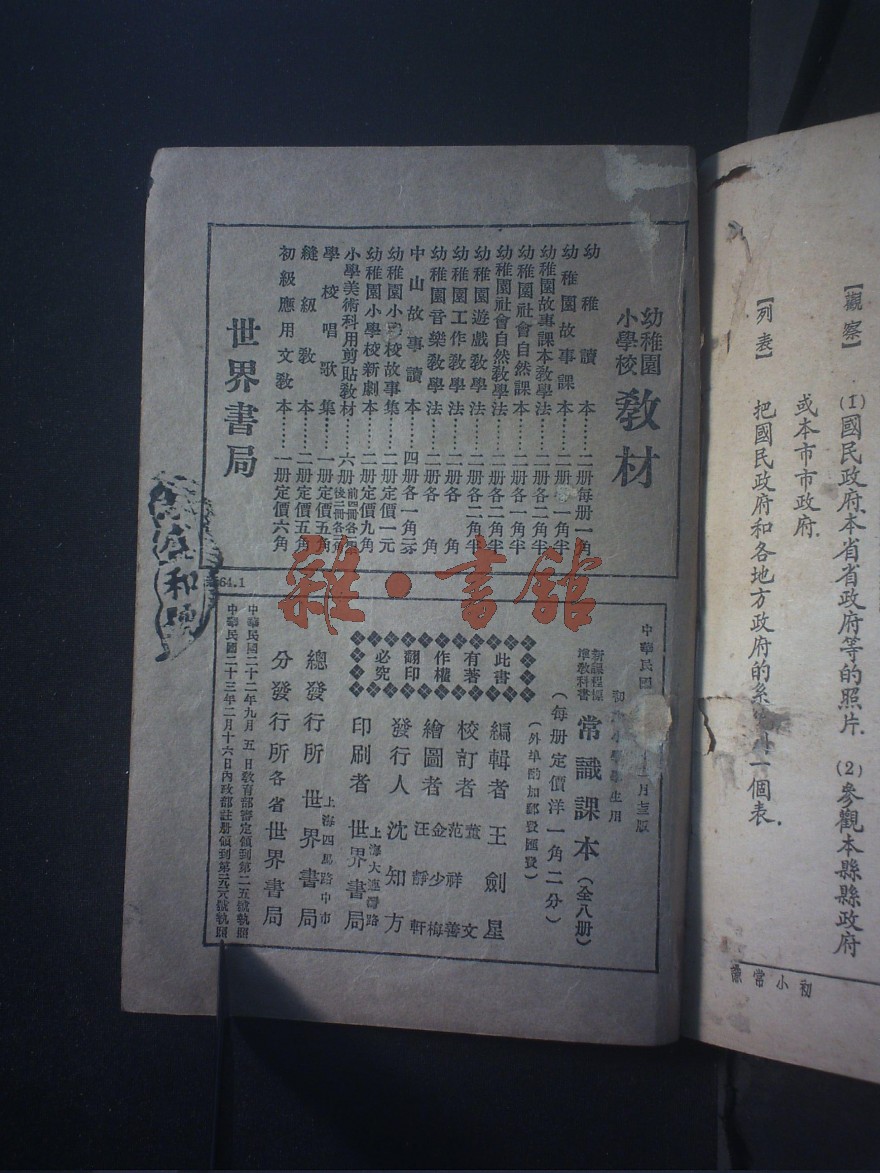 【觀察】 (1)國民政府本省省政府等的照片. (2)參觀本縣縣政府
或本市市政府.
【列表】 把國民政府和各地方政府的系 一個表.
初小常識
幼稚園
小學校
教材
幼稚讀本……二册每册一角
幼稚園故事課本……二册 一角半
幼稚園故事課本教學法……二册各二角半
幼稚園社會自然課本……二册各一角半
幼稚園社會自然教學法……二册各二角半
幼稚園遊戲教學法……二册各二角半
幼稚園工作教學法……二册各 角
幼稚園音樂教學法……二册各 角
中山故事讀本……四册各一角
幼稚園小學校故事集……二册定價一元
幼稚園小學校新劇本……二册定價九角
小學美術科用剪貼教材……六册
學校唱歌集……一册定價五角
縫級教本……二册定價五角
初級應用文教本……一册定價六角
世界書局
64.1
雜·書館
中華民國 月 版
初 小學學生用
新課程標
準教科書
常識課本(全八册)
(每册定價洋一角二分)
(外埠酌加郵費匯費)
此書
有著
作權
翻印
必究
編輯者 王劍星
校訂者 董文
范祥善
繪圖者 金少梅
汪靜軒
發行人 沈知方
印刷者 上海大連灣路
世界書局
總發行所 上海四馬路中市
世界書局
分發行所 各省世界書局
中華民國二十二年九月 五 日教育部審定領到第二五號執照
中華民國二十三年二月十六日內政部註册領到第 號執照
和